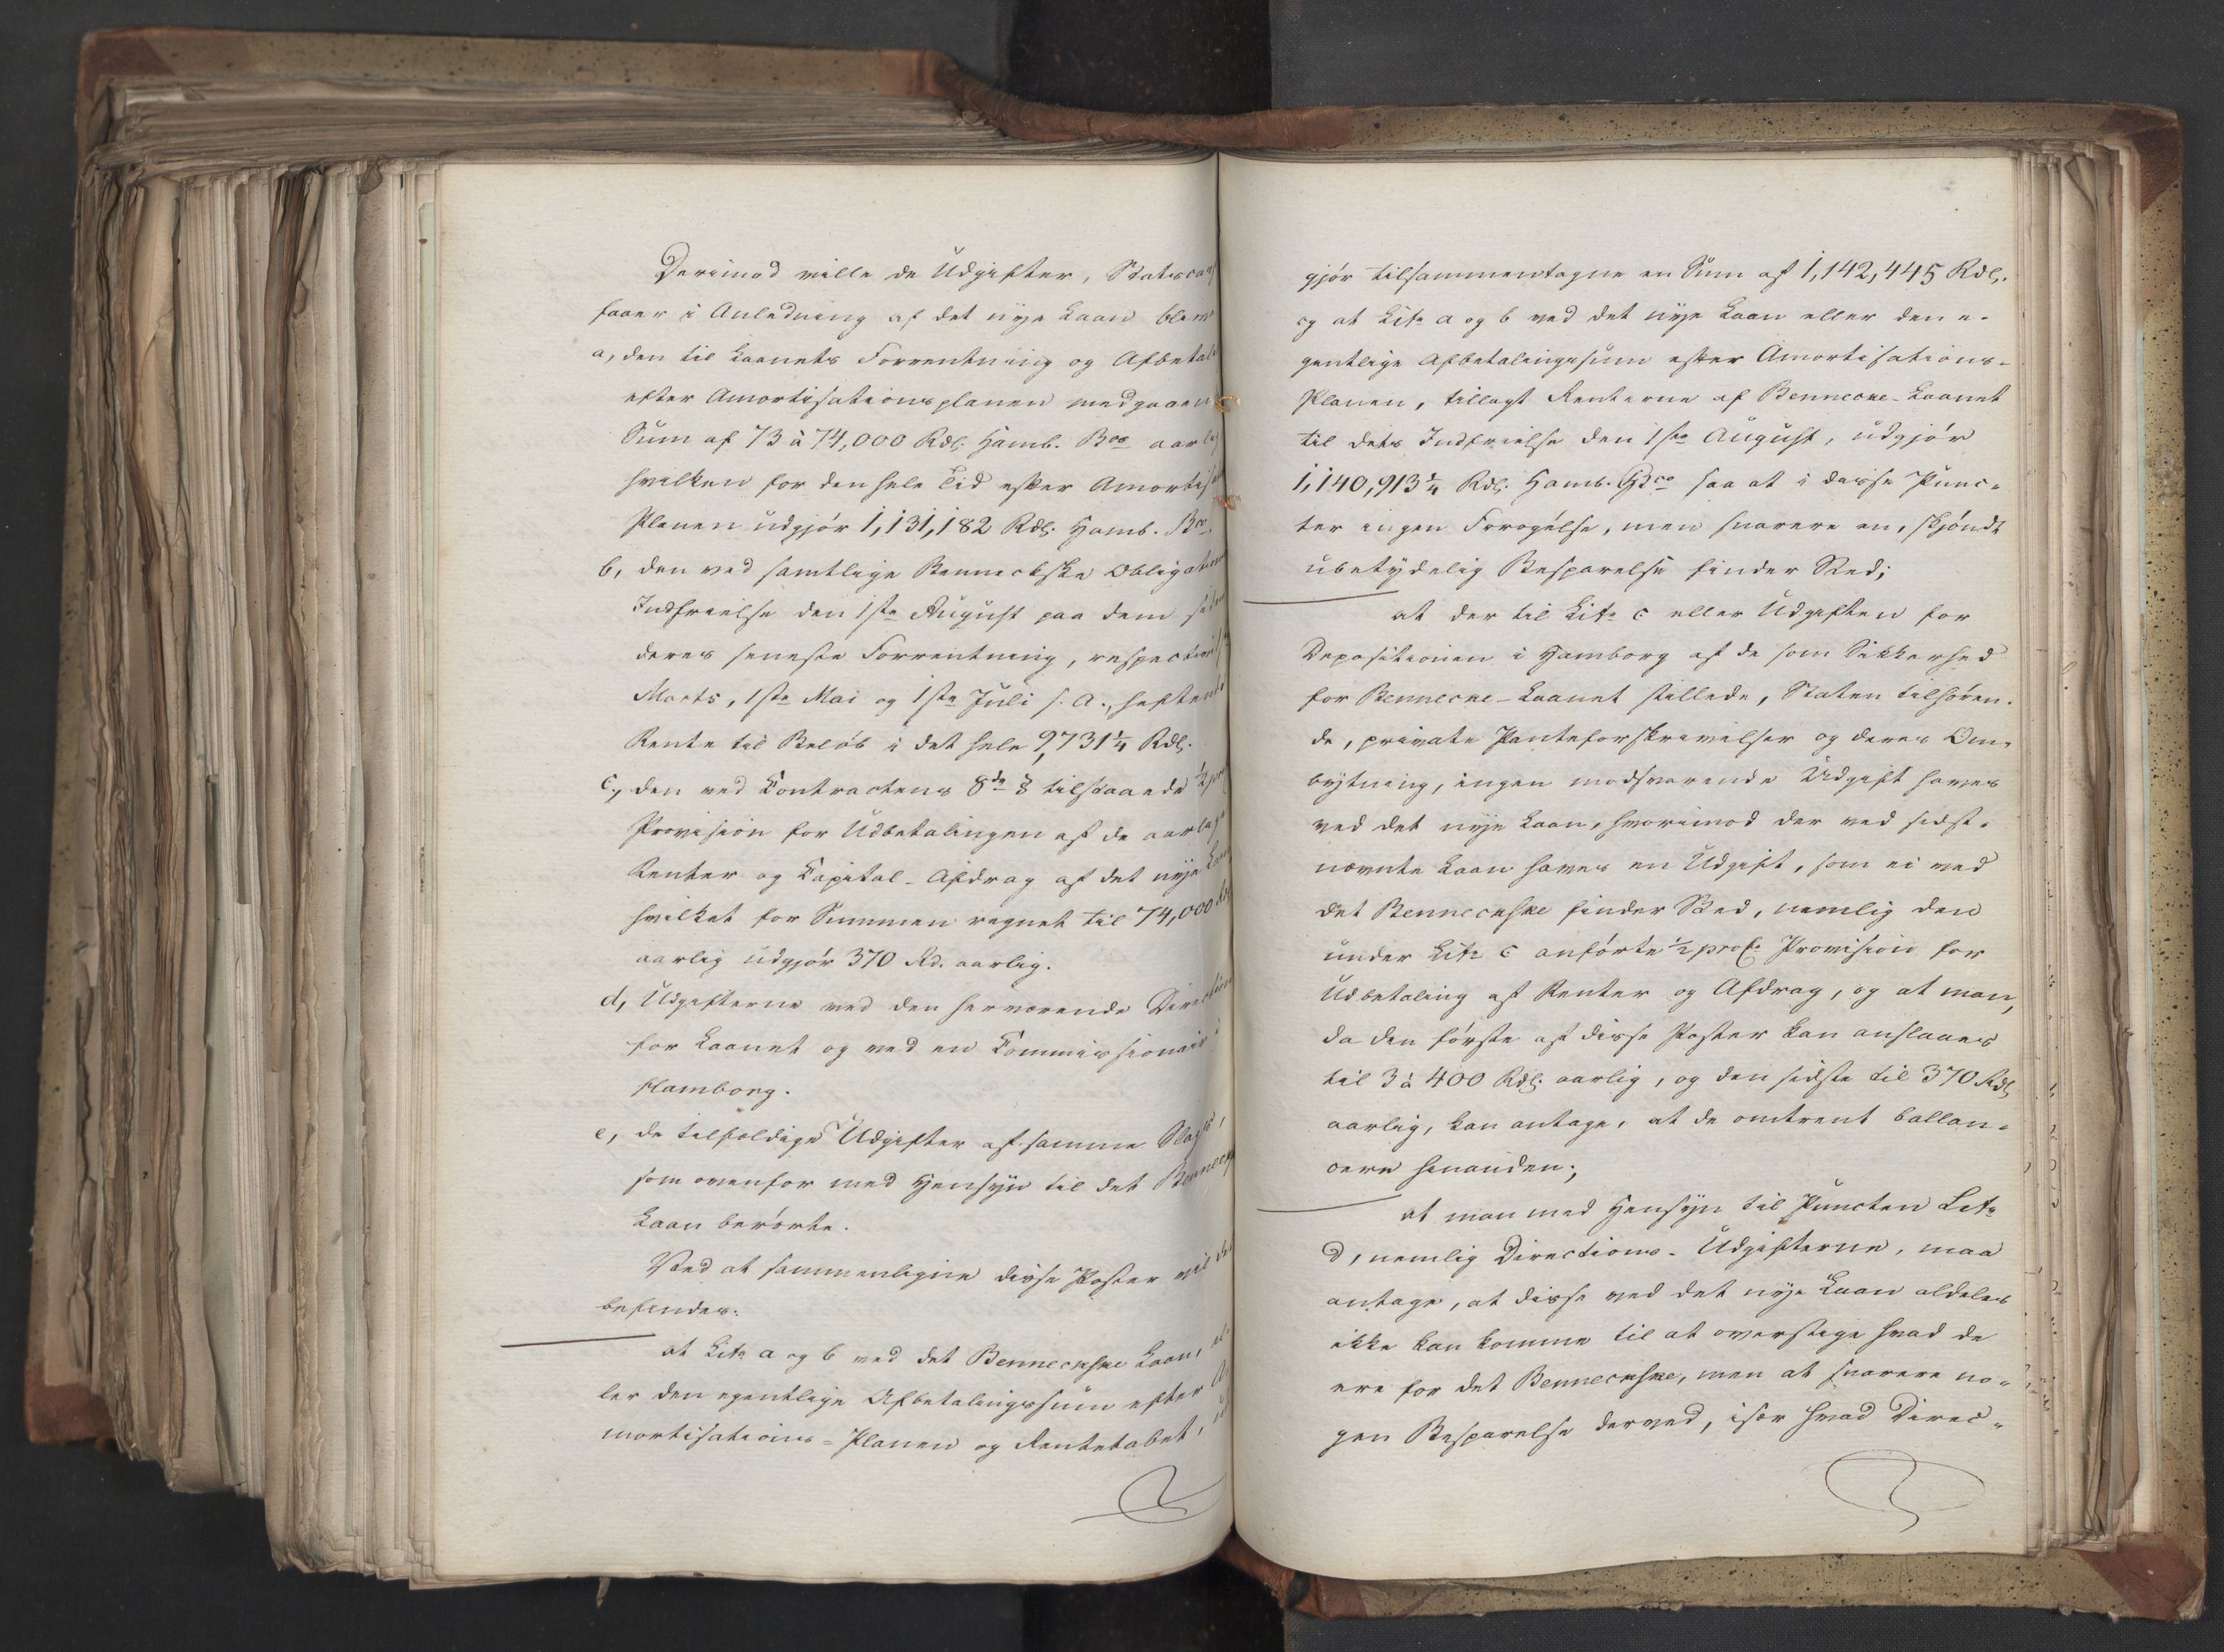 Derimod ville de Udgifter, Statscas
faaer i Anledning af det nye Laan blive
a, den til Laanets Forrentning og Afbetal
efter Amortisationsplanen medgaaen
Sum af 73 à 74,000 Rdl. Hamb. Bco aarlig
hvilken for den hele Tid efter Amortisat
Planen udgjør 1,131,182 Rdl. Hamb. Bco.
b, den ved samtlige Benneckske Obligation
Indfrielse den 1ste August paa dem siden
deres seneste Forrentning, respective
Marts, 1ste Mai og 1ste Juli f. A., heftende
Rente til Beløb i det hele 9,731¼ Rdl.
c, den ved Contractens 8de § tilstaaede ½ pro
Provision for Udbetalingen af de aarlige
Renter og Capital-Afdrag af det nye Laan
hvilket for Summen regnet til 74,000 Rdl
aarlig udgjør 370 Rd. aarlig.
d, Udgifterne ved den herværende Direction
for Laanet og ved en Commissionair i
Hamborg.
e, de tilfældige Udgifter af samme Slags,
som ovenfor med Hensyn til det Benneck
Laan berørte.
Ved at sammenligne disse Poster vil det
befindes:
at Litr a og b ved det Benneckske Laan, el-
ler den egentlige Afbetalingssum efter A
mortisations-Planen og Rentetabet, ud
gjør tilsammentagne en Sum af 1,142,445 Rdl.
og at Litr a og b ved det nye Laan eller den e-
gentlige Afbetalingssum efter Amortisations-
Planen, tillagt Renterne af Bennecke-Laanet
til dets Indfrielse den 1ste August, udgjør
1,140,913¼ Rdl. Hamb. Bco saa at i disse Punc-
ter ingen Forøgelse, men snarere en, skjøndt
ubetydelig Besparelse finder Sted;
at der til Litr c eller Udgiften for
Depositionen i Hamborg af de som Sikkerhed
for Bennecke-Laanet stillede, Staten tilhøren-
de, private Panteforskrivelser og deres Om-
bytning, ingen modsvarende Udgift haves
ved det nye Laan, hvorimod der ved sidst-
nævnte Laan haves en Udgift, som ei ved
det Benneckske finder Sted, nemlig den
under Litr c anførte ½ proC. Provision for
Udbetaling af Renter og Afdrag, og at man,
da den første af disse Poster kan anslaaes
til 3 à 400 Rdl. aarlig, og den sidste til 370 Rdl
aarlig, kan antage, at de omtrent ballan-
cere hinanden;
at man med Hensyn til Puncten Litr
d, nemlig Directions-Udgifterne, maa
antage, at disse ved det nye Laan aldeles
ikke kan komme til at overstige hvad de
ere for det Benneckske, men at snarere no-
gen Besparelse derved, især hvad Direc-